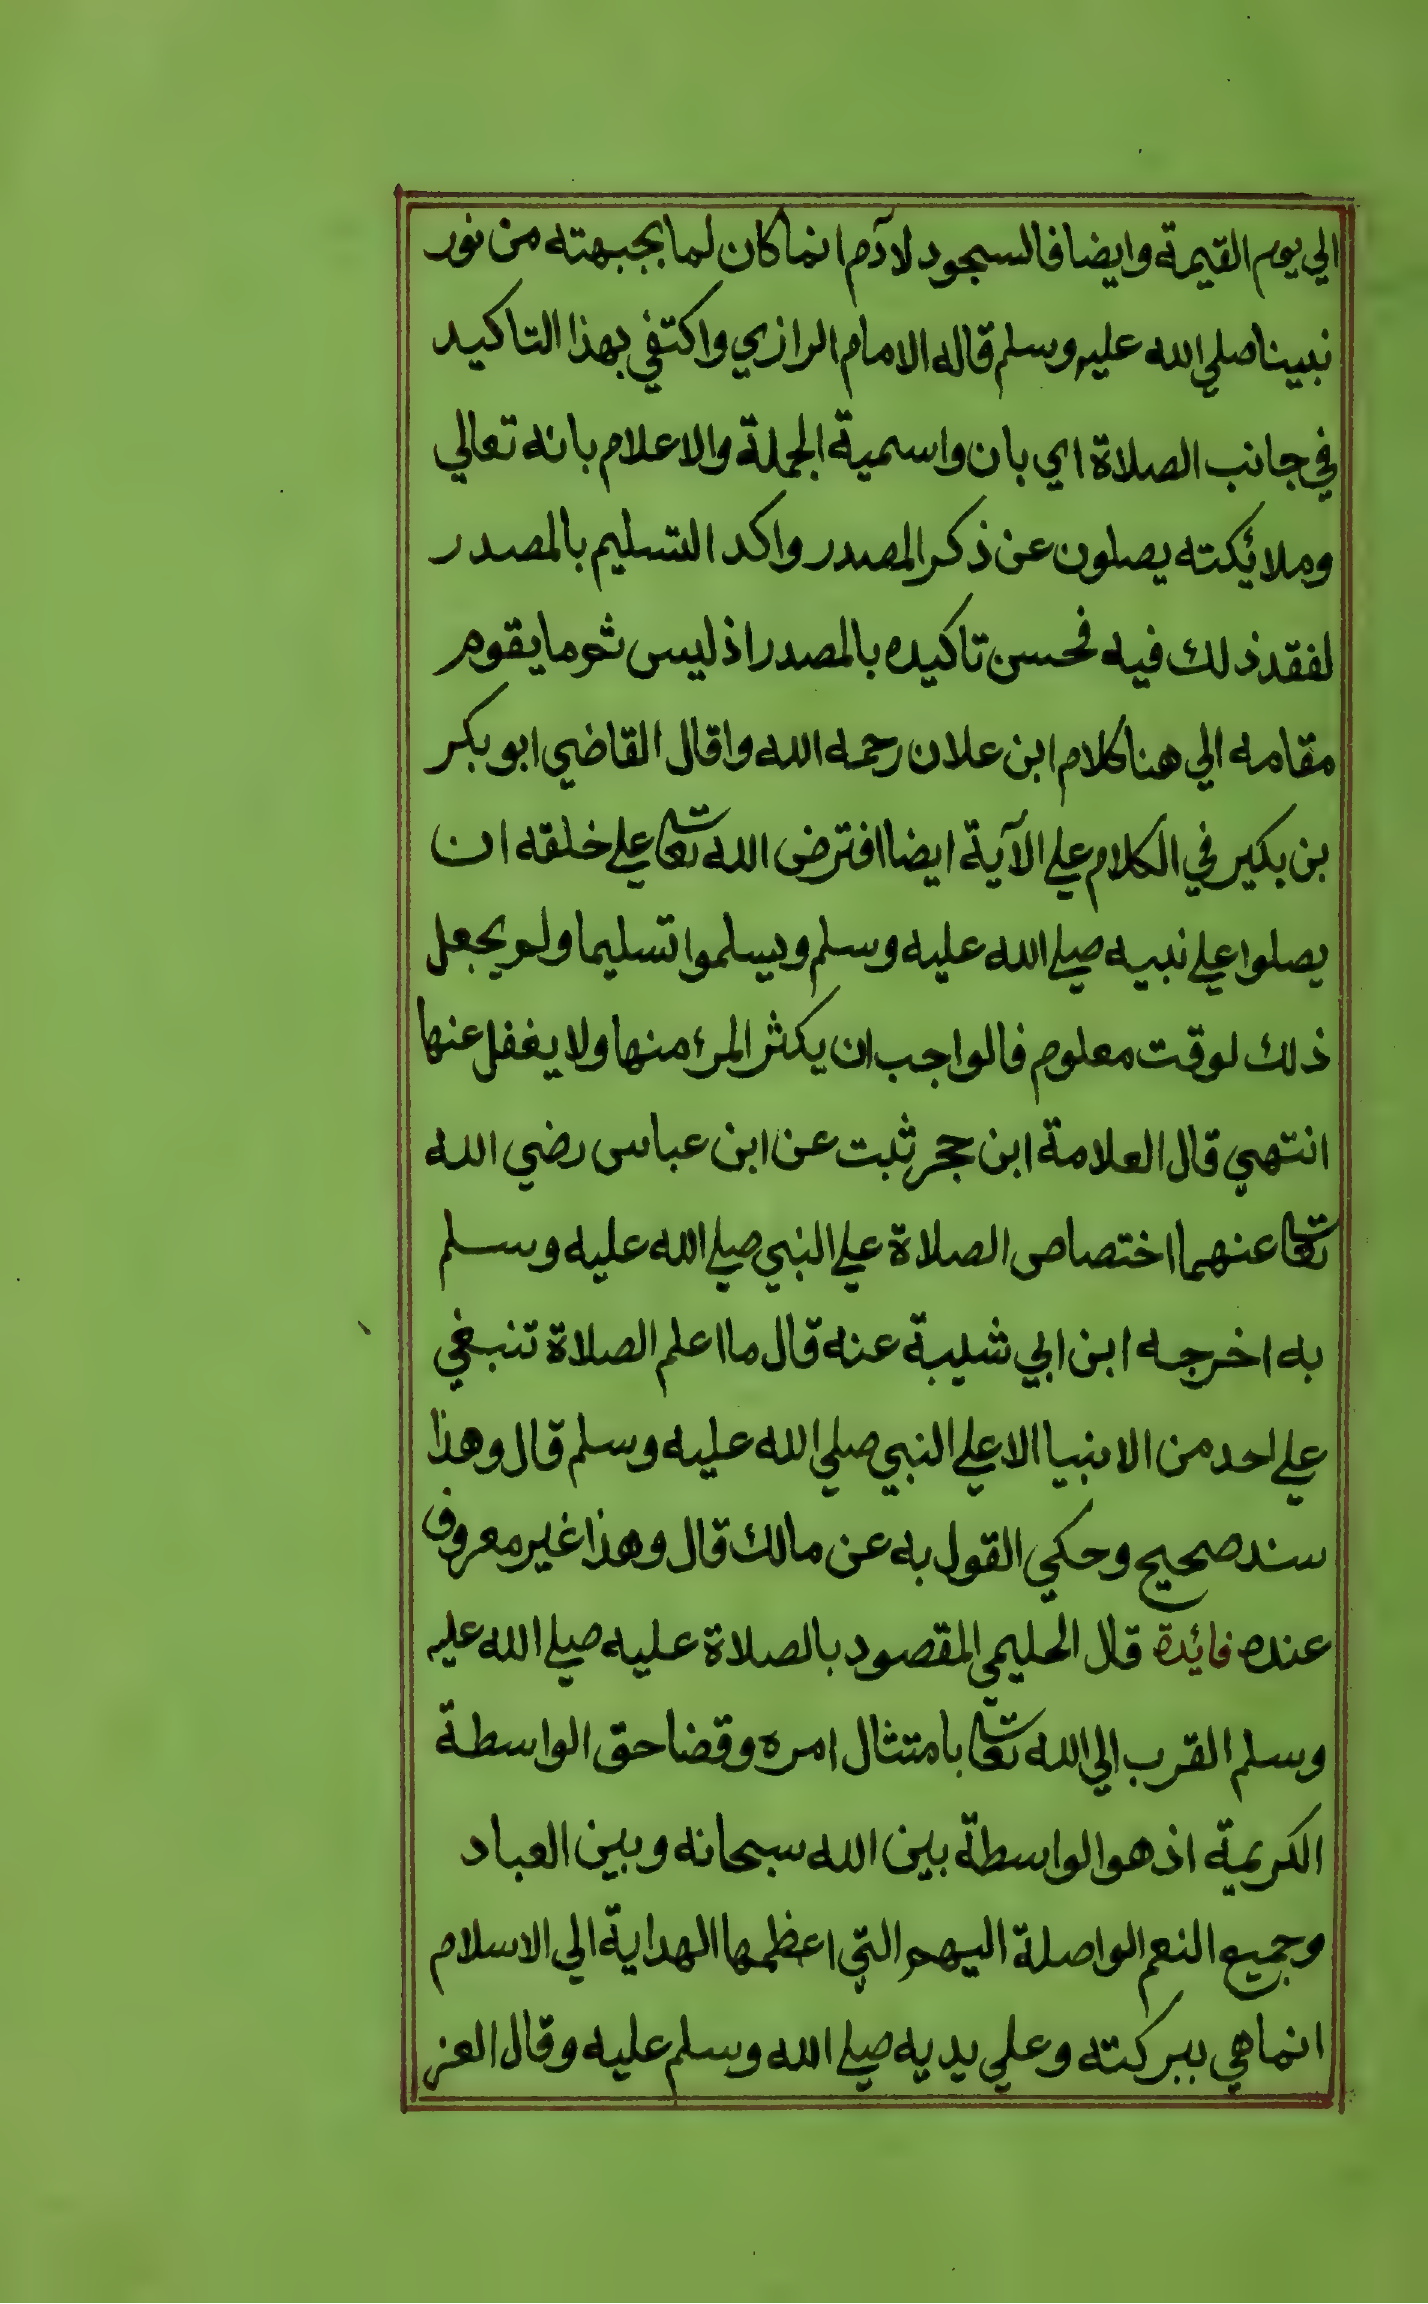 الي يوم القيمة وايضا فالسجود لآدم انما كان لما بجبهته من نور
نبينا صلي الله عليه وسلم قاله الامام الرازي واكتفي بهذا التاكيد
في جانب الصلاة اي بان واسمية الجملة والاعلام بانه تعالي
وملائكته يصلون عن ذكر المصدر واكد التسليم بالمصدر
لفقد ذلك فيه فحسن تاكيده بالمصدر اذ ليس ثم ما يقوم
مقامه الي هنا كلام ابن علان رحمه الله واقال القاضي ابو بكر
بن بكير في الكلام علي الآية ايضا افترض الله تعا علي خلقه ان
يصلوا علي نبيه صلي الله عليه وسلم ويسلموا تسليما ولم يجعل
ذلك لوقت معلوم فالواجب ان يكثر المرء منها ولا يغفل عنها
انتهي قال العلامة ابن حجر ثبت عن ابن عباس رضي الله
تعا عنهما اختصاص الصلاة علي النبي صلي الله عليه وسلم
به اخرجه ابن ابي شيبة عنه قال ما اعلم الصلاة تنبغي
علي احد من الانبيا الا علي النبي صلي الله عليه وسلم قال وهذا
سند صحيح وحكي القول به عن مالك قال وهذا غير معروف
عنده فائدة قال الحليمي المقصود بالصلاة عليه صلي الله عليه
وسلم القرب الي الله تعا بامتثال امره وقضا حق الواسطة
الكريمة اذ هو الواسطة بين الله سبحانه وبين العباد
وجميع النعم الواصلة اليهم التي اعظمها الهداية الي الاسلام
انما هي ببركته وعلي يديه صلي الله وسلم عليه وقال العز